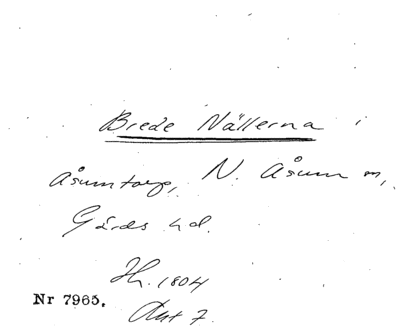 Brede Nällerna i
Åsumtorp, N. Åsum sn,
Gärds hd.
Hr. 1804
Akt 7.
Nr 7965.